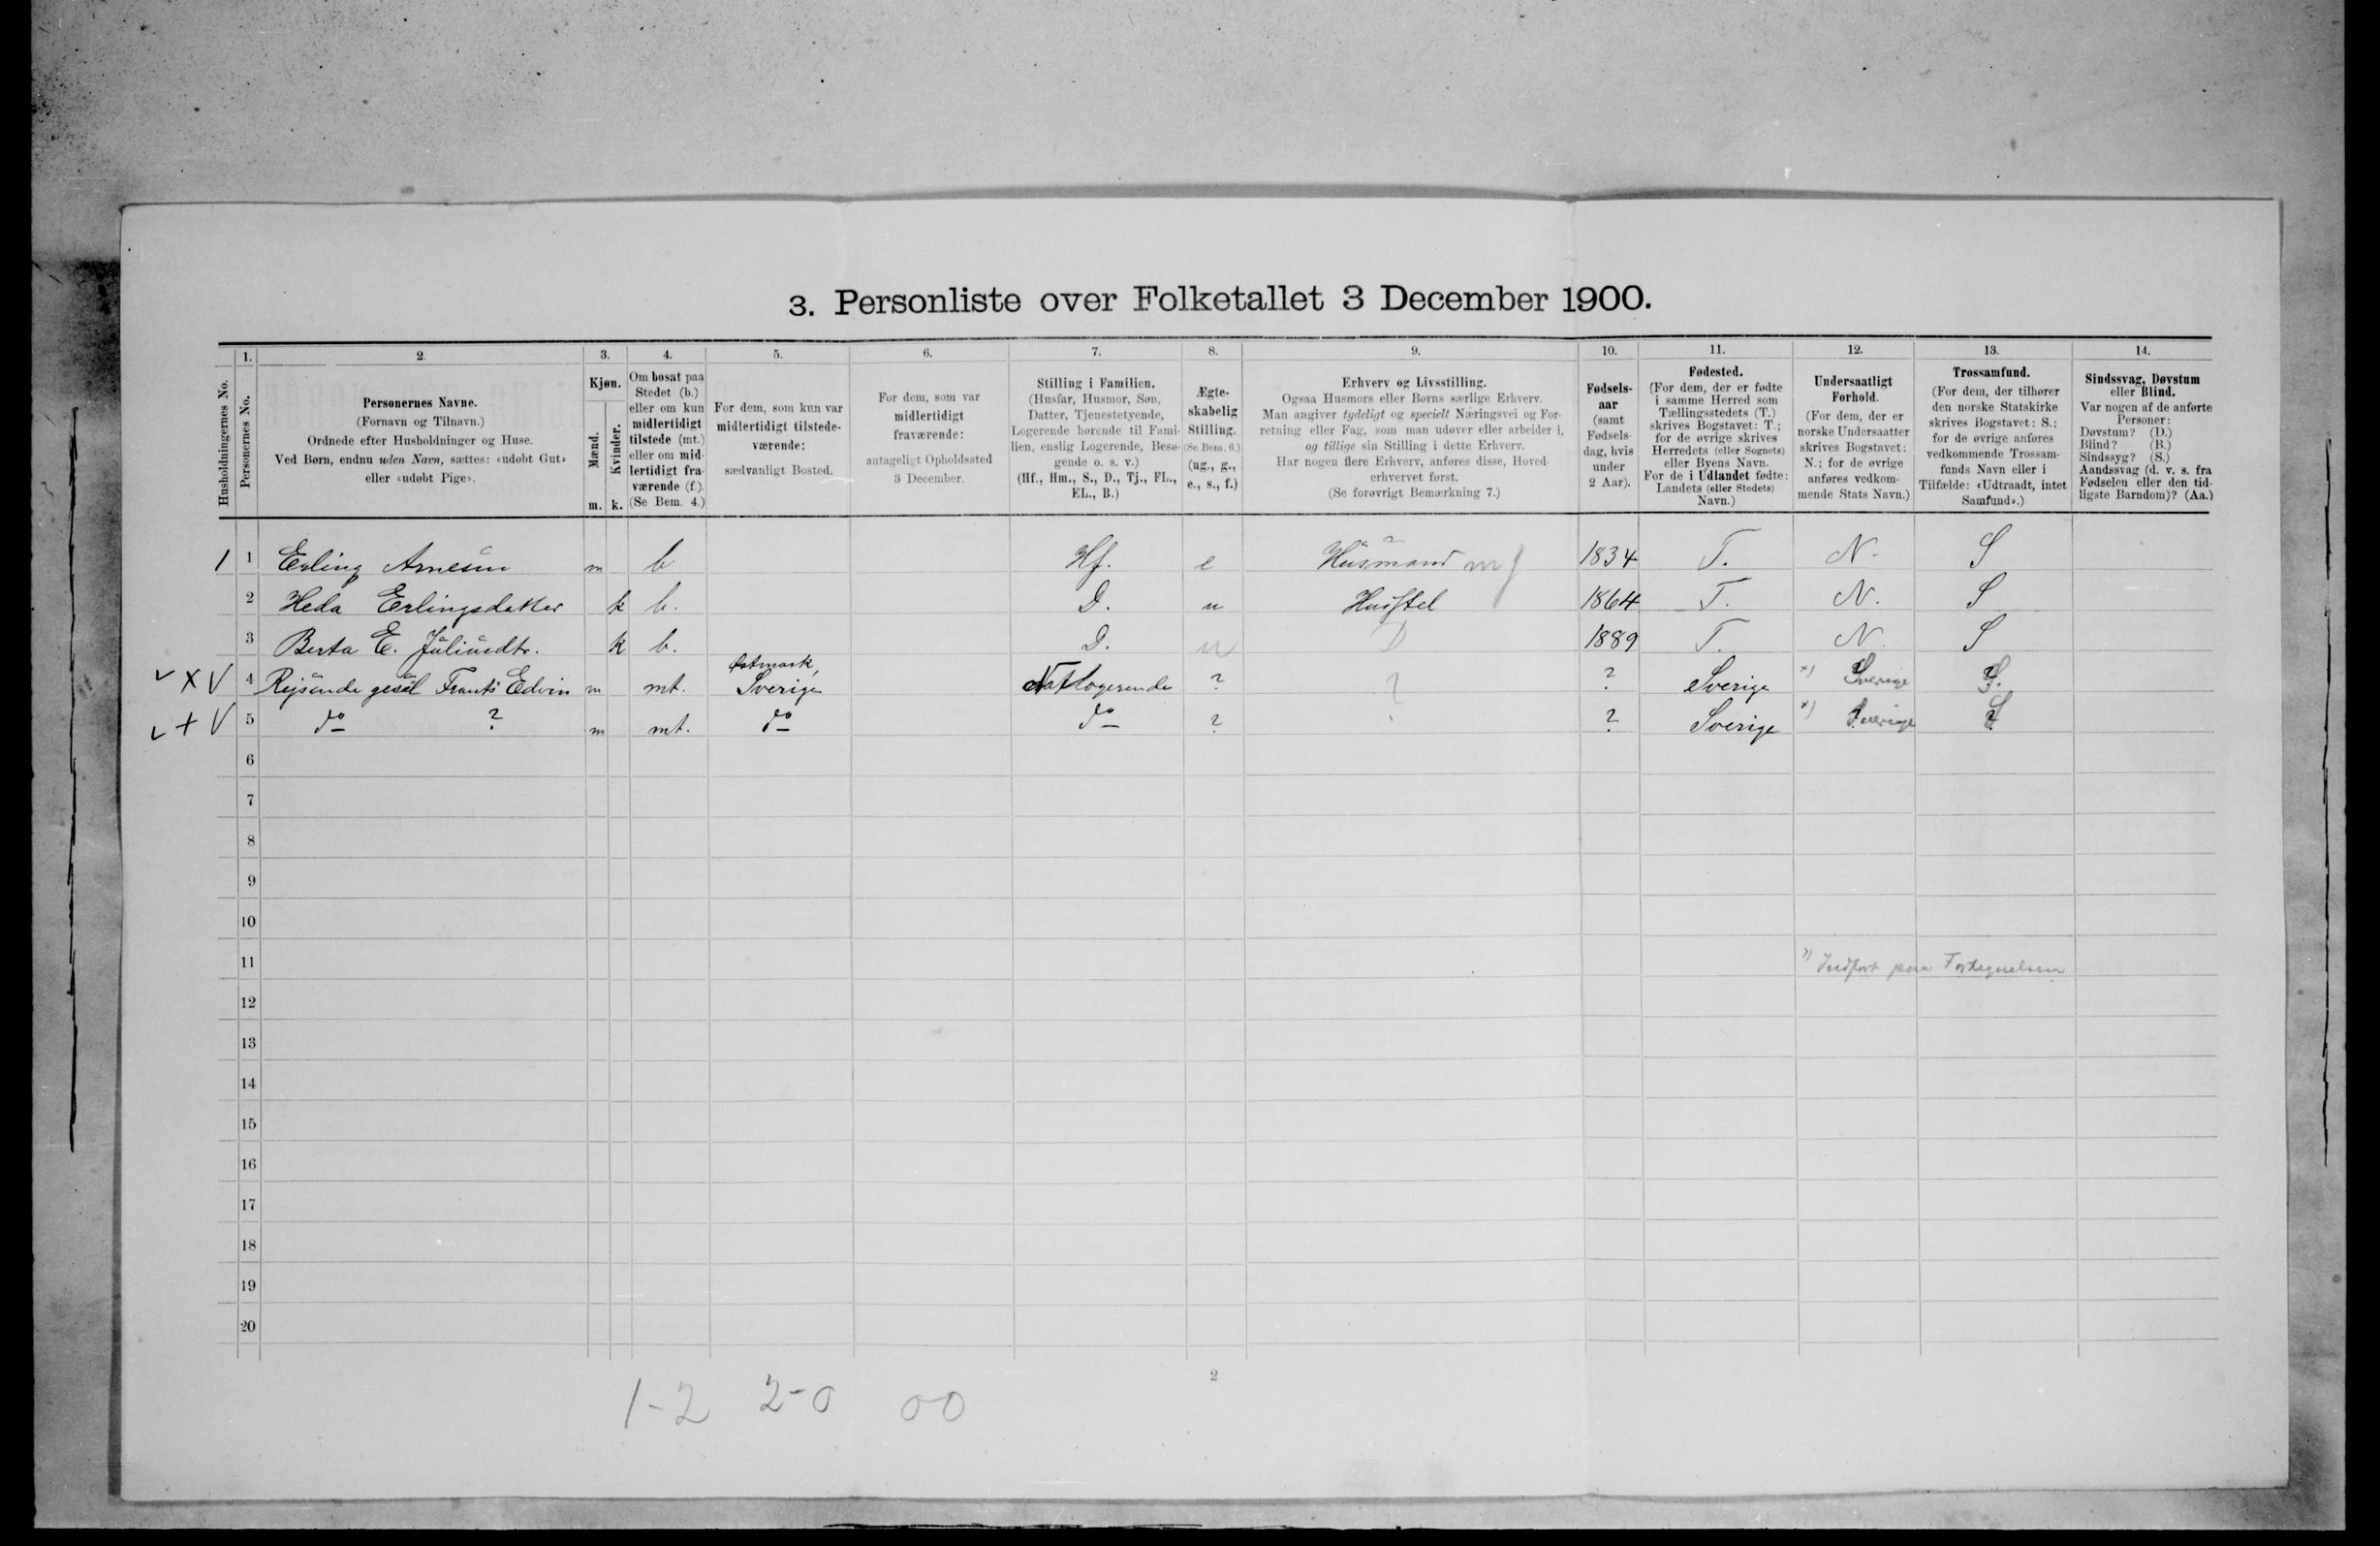 3. Personliste over Folketallet 3 December 1900.
1. 2. 3. 4. 5. 6. 7. 8. 9. 10. 11. 12. 13. 14.
Husholdningernes No.
Personernes No.
Personernes Navne.
(Fornavn og Tilnavn.)
Ordnede efter Husholdninger og Huse.
Ved Børn, endnu uden Navn, sættes: «udøbt Gut»
eller «udøbt Pige».
Kjøn.
Mænd.
Kvinder.
m. k.
Om bosat paa
Stedet (b.)
eller om kun
midlertidigt
tilstede (mt.)
eller om mid-
lertidigt fra-
værende (f.).
(Se Bem. 4.)
For dem, som kun var
midlertidigt tilstede-
værende:
sædvanligt Bosted.
For dem, som var
midlertidigt
fraværende:
antageligt Opholdssted
3 December.
Stilling i Familien.
(Husfar, Husmor, Søn,
Datter, Tjenestetyende,
Logerende hørende til Fami-
lien, enslig Logerende, Besø-
gende o. s. v.)
(Hf., Hm., S., D., Tj., FL.,
EL., B.)
Ægte-
skabelig
Stilling.
(Se Bem. 6.)
(ug., g.,
e., s., f.)
Erhverv og Livsstilling.
Ogsaa Husmors eller Børns særlige Erhverv.
Man angiver tydeligt og specielt Næringsvei og For-
retning eller Fag, som man udøver eller arbeider i,
og tillige sin Stilling i dette Erhverv.
Har nogen flere Erhverv, anføres disse, Hoved-
erhvervet først.
(Se forøvrigt Bemærkning 7.)
Fødsels-
aar
(samt
Fødsels-
dag, hvis
under
2 Aar).
Fødested.
(For dem, der er fødte
i samme Herred som
Tællingsstedets (T.)
skrives Bogstavet: T.;
for de øvrige skrives
Herredets (eller Sognets)
eller Byens Navn.
For de i Udlandet fødte:
Landets (eller Stedets)
Navn.)
Undersaatligt
Forhold.
(For dem, der er
norske Undersaatter
skrives Bogstavet:
N.; for de øvrige
anføres vedkom-
mende Stats Navn.)
Trossamfund.
(For dem, der tilhører
den norske Statskirke
skrives Bogstavet: S.;
for de øvrige anføres
vedkommende Trossam-
funds Navn eller i
Tilfælde: «Udtraadt, intet
Samfund».)
Sindssvag, Døvstum
eller Blind.
Var nogen af de anførte
Personer:
Døvstum? (D.)
Blind? (B.)
Sindssyg? (S.)
Aandssvag (d. v. s. fra
Fødselen eller den tid-
ligste Barndom)? (Aa.)
1 1 Erling Arnesen m b Hf. e Husmand m j 1834 T. N. S
2 Heda Erlingsdatter k b. D. u Husstel 1864 T. N. S
3 Berta E. Juliusdtr. k b. D. u D 1889 T. N. S
Østmark,
4 Rejsende gesæl Frants Edvin m mt. Sverige Natlogerende ? ? ? Sverige *) Sverige S.
5 do ? m mt. do do ? ? Sverige *) Sverige S
6
7
8
9
10
11 *) Indført paa Fortegnelsen
12
13
14
15
16
17
18
19
20
2
1-2 2-0 00